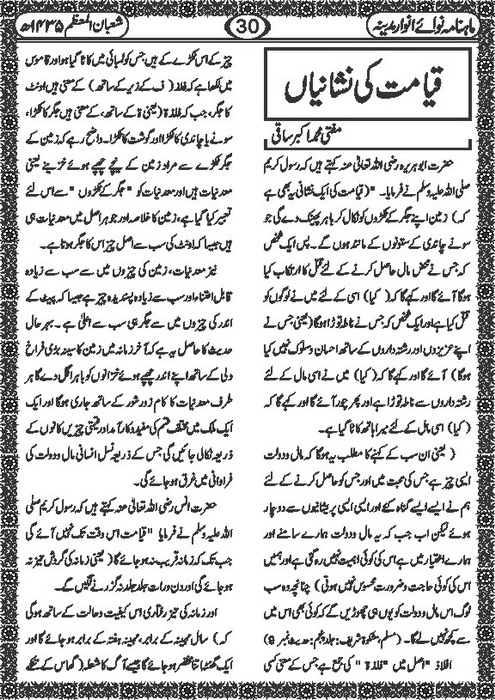 ماہنامہ نوائے انوار مدینہ
30
شعبان المعظم ۱۴۳۵ھ
قیامت کی نشانیاں
مفتی محمد اکبر ساقی
حضرت ابو ہریرہ رضی اللہ تعالیٰ عنہ کہتے ہیں کہ رسول کریم
صلی اللہ علیہ وسلم نے فرمایا۔ "(قیامت کی ایک نشانی یہ بھی ہے
کہ) زمین اپنے جگر کے ٹکڑوں کو نکال کر باہر پھینک دے گی جو
سونے چاندی کے ستونوں کے مانند ہوں گے۔ پس ایک شخص
کہ جس نے محض مال حاصل کرنے کے لئے قتل کا ارتکاب کیا
ہوگا آئے گا اور کہے گا کہ (کیا) اسی کے لئے میں نے لوگوں کو
قتل کیا ہے اور ایک شخص کہ جس نے ناطہ توڑا ہوگا (یعنی جس نے
اپنے عزیزوں اور رشتہ داروں کے ساتھ احسان و سلوک نہیں کیا
ہوگا) آئے گا اور کہے گا کہ (کیا) میں نے اسی مال کے لئے
رشتہ داروں سے ناطہ توڑا ہے اور پھر چور آئے گا اور کہے گا کہ
(کیا) اسی مال کے لئے میرا ہاتھ کاٹا گیا ہے۔
(یعنی ان سب کے کہنے کا مطلب یہ ہوگا کہ مال و دولت
ایسی چیز ہے جس کی محبت میں اور جس کو حاصل کرنے کے لئے
ہم نے ایسے ایسے گناہ کئے اور ایسی ایسی پریشانیوں سے دوچار
ہوئے لیکن اب جب کہ یہ مال و دولت ہمارے سامنے اور
ہمارے اختیار میں ہے اس کی کوئی اہمیت نہیں رہ گئی ہے اور ہمیں
اس کی کوئی حاجت و ضرورت محسوس نہیں ہوتی) چنانچہ وہ سب
لوگ اس مال و دولت کو یوں ہی چھوڑیں گے کہ کوئی بھی اس میں
سے کچھ نہیں لے گا۔ (مسلم، مشکوٰۃ شریف: جلد پنجم: حدیث نمبر 8)
افلاذ "اصل میں "فلذۃ" کی جمع ہے جس کے معنی کسی
چیز کے اس ٹکڑے کے ہیں جس کو لمبائی میں کاٹا گیا ہو اور قاموس
میں لکھا ہے کہ فلذ (ف کے زیر کے ساتھ) کے معنی ہیں اونٹ
کا جگر، جب کہ فلذۃ (یعنی ۃ کے ساتھ، کے معنی ہیں جگر کا ٹکڑا،
سونے یا چاندی کا ٹکڑا اور گوشت کا ٹکڑا۔ واضح رہے کہ زمین کے
جگر ٹکڑے سے مراد زمین کے نیچے چھپے ہوئے خزینے یعنی
معدنیات ہیں اور معدنیات کو "جگر کے ٹکڑوں" سے اس لئے
تعبیر کیا گیا ہے، زمین کا خلاصہ اور جوہر اصل میں معدنیات ہی
ہیں جیسا کہ اونٹ کی سب سے اصل چیز اس کا جگر ہوتا ہے۔
نیز معدنیات، زمین کی چیزوں میں سے سب سے زیادہ
قابل اعتناء اور سب سے زیادہ پسندیدہ چیز ہے جیسا کہ پیٹ کے
اندر کی چیزوں میں سے جگر ہی سب سے اعلیٰ ہے۔ بہر حال
حدیث کا حاصل یہ ہے کہ آخر زمانہ میں زمین کا سینہ بڑی فراخ
دلی کے ساتھ اپنے اندر چھپے ہوئے خزانوں کو باہر اگل دے گا ہر
طرف معدنیات کا کام زور شور کے ساتھ جاری ہوگا اور ایک
ایک ملک میں مختلف قسم کی مفید و کارآمد اور قیمتی چیزیں کانوں کے
ذریعہ نکالی جائیں گی جس کے ذریعہ نسل انسانی مال و دولت کی
فراوانی میں غرق ہو جائے گی۔
حضرت انس رضی اللہ تعالیٰ عنہ کہتے ہیں کہ رسول کریم صلی
اللہ علیہ وسلم نے فرمایا "قیامت اس وقت تک نہیں آئے گی
جب تک کہ زمانہ قریب نہ ہو جائے گا (یعنی زمانہ کی گردش تیز نہ
ہو جائے گی اور دن و رات جلد جلد نہ گزرنے لگیں گے۔
اور زمانہ کی تیز رفتاری اس کیفیت و حالت کے ساتھ ہوگی
کہ) سال مہینہ کے برابر، مہینہ ہفتہ کے برابر ہو جائے گا اور
ایک گھنٹا اتنا مختصر ہو جائے گا جیسے آگ کا شعلہ (گھاس کے تنکے